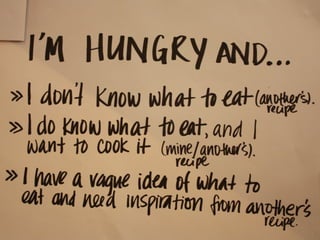 I'M HUNGRY AND...
» I don't know what to eat (another's).
recipe
» I do know what to eat, and I
want to cook it (mine/another's).
recipe
» I have a vague idea of what to
eat and need inspiration from another's
recipe.